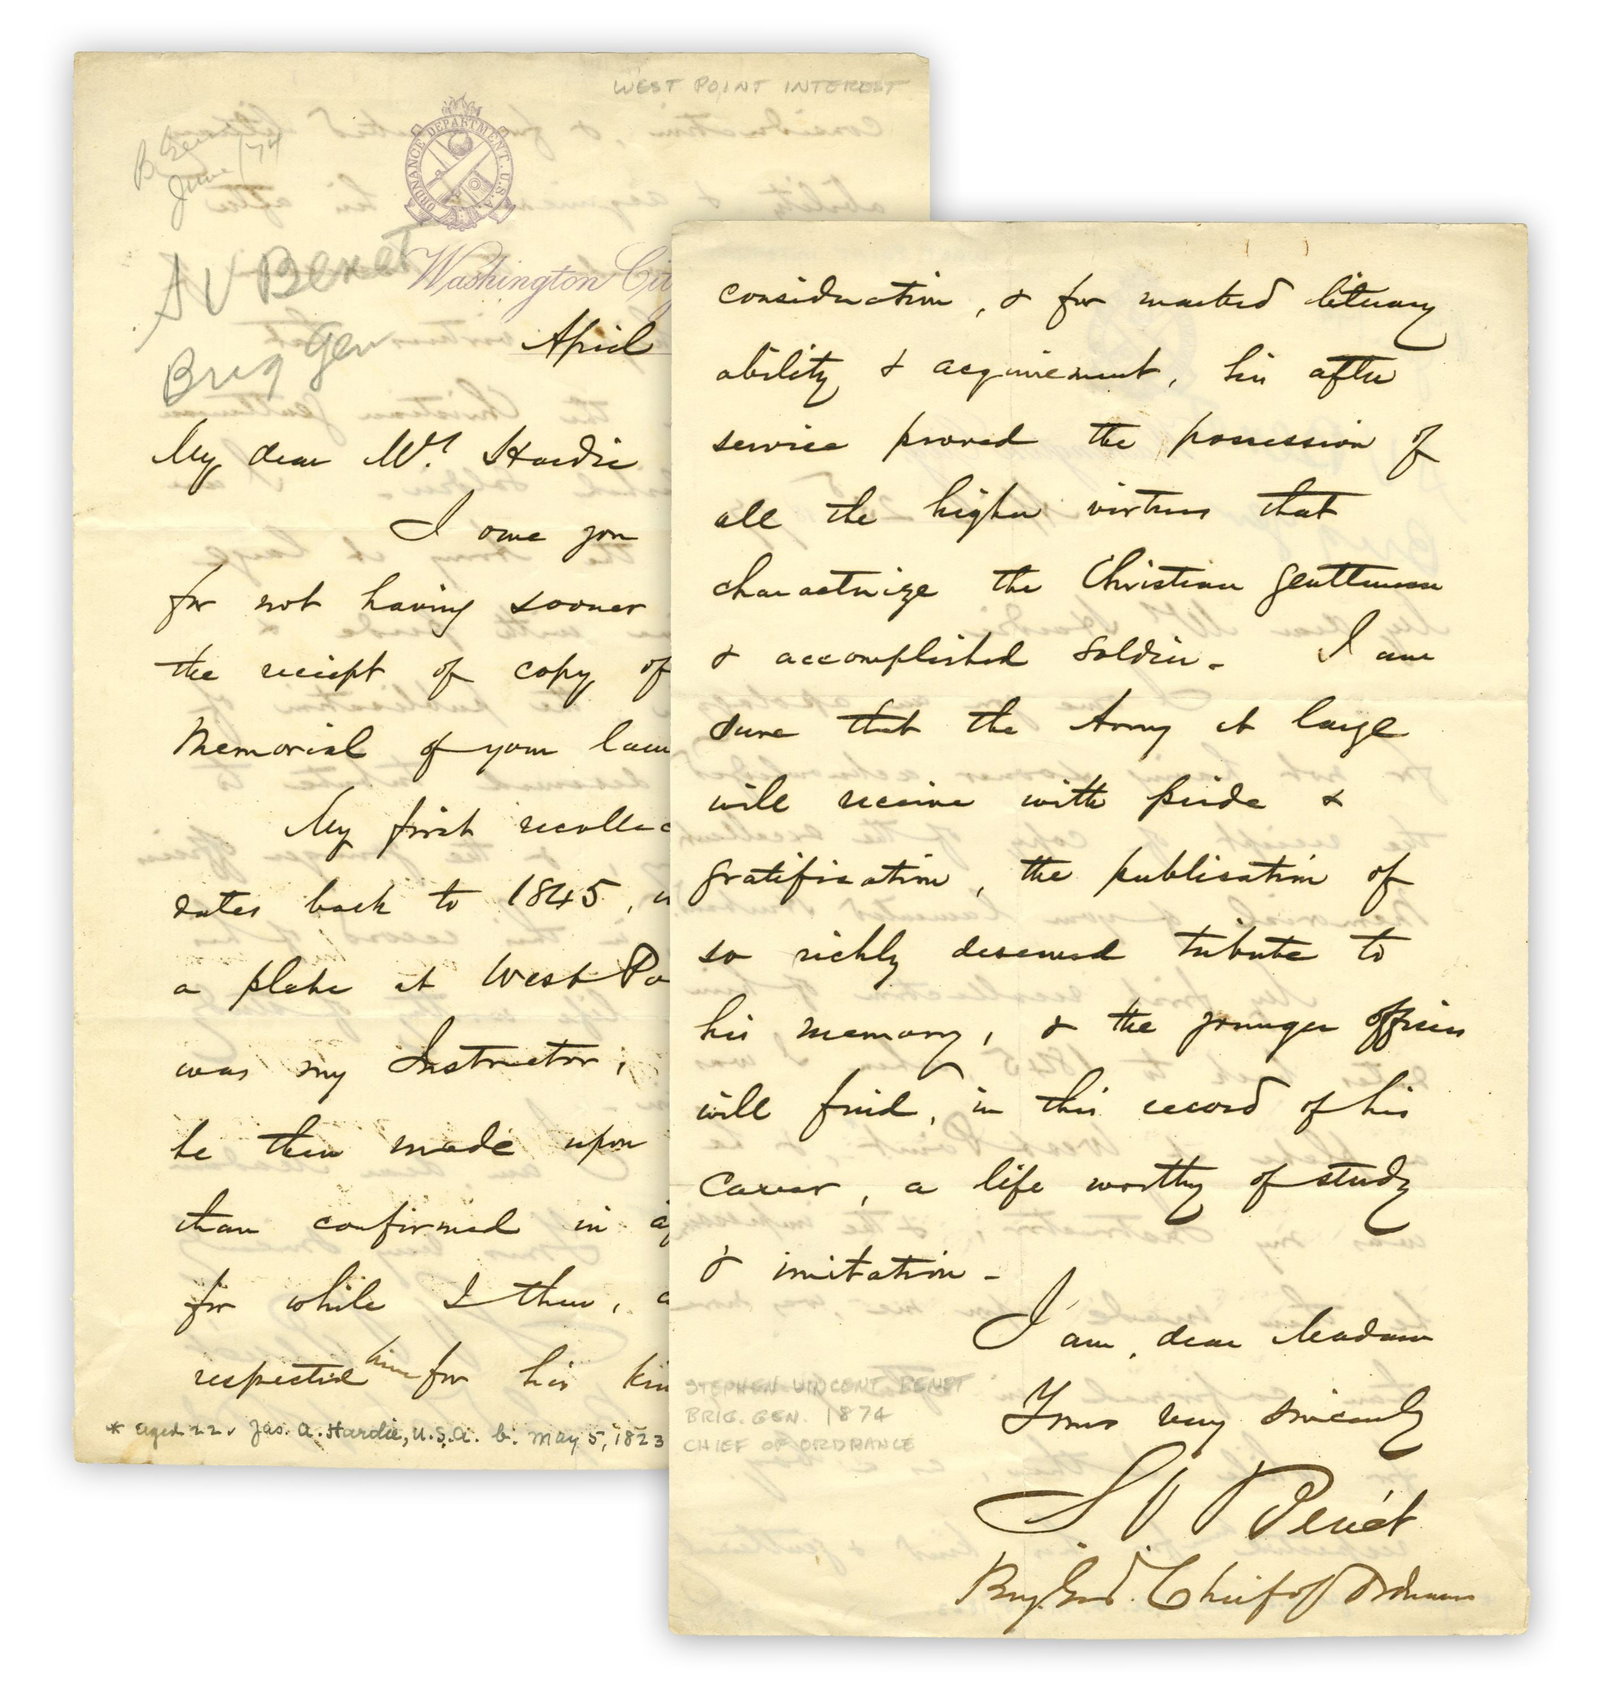 WEST POINT INTEREST
B Gen
June /74
ORDNANCE DEPARTMENT. U.S.A.
S V BENET
Brig Gen
Washington Cit
April
My dear Mrs. Hardie
I owe you
for not having sooner
the receipt of copy of
Memorial of your lam
My first recollec
dates back to 1845, w
a plebe at West Po
was my Instructor;
he then made upon
than confirmed in a
for while I then, a
respected him for his kin
* aged 22. Jas. A. Hardie, U.S.A. b. May 5, 1823
consideration, & for marked literary
ability & acquirement, his after
service proved the possession of
all the higher virtues that
characterize the Christian gentleman
& accomplished soldier - I am
sure that the Army at large
will receive with pride &
gratification, the publication of
so richly deserved tribute to
his memory, & the younger officers
will find, in this record of his
career, a life worthy of study
& imitation -
I am, dear Madam
Yours very sincerely
S V Benét
Brig. Genl. Chief of Ordnance
STEPHEN VINCENT BENET
BRIG. GEN. 1874
CHIEF OF ORDRANCE